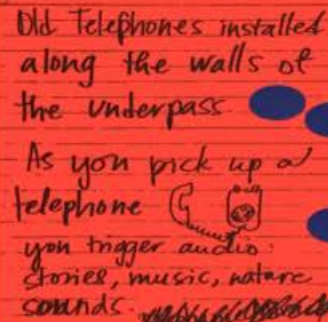 Old Telephones installed
along the walls of
the underpass
As you pick up a
telephone
you trigger audio:
stories, music, nature
sounds.